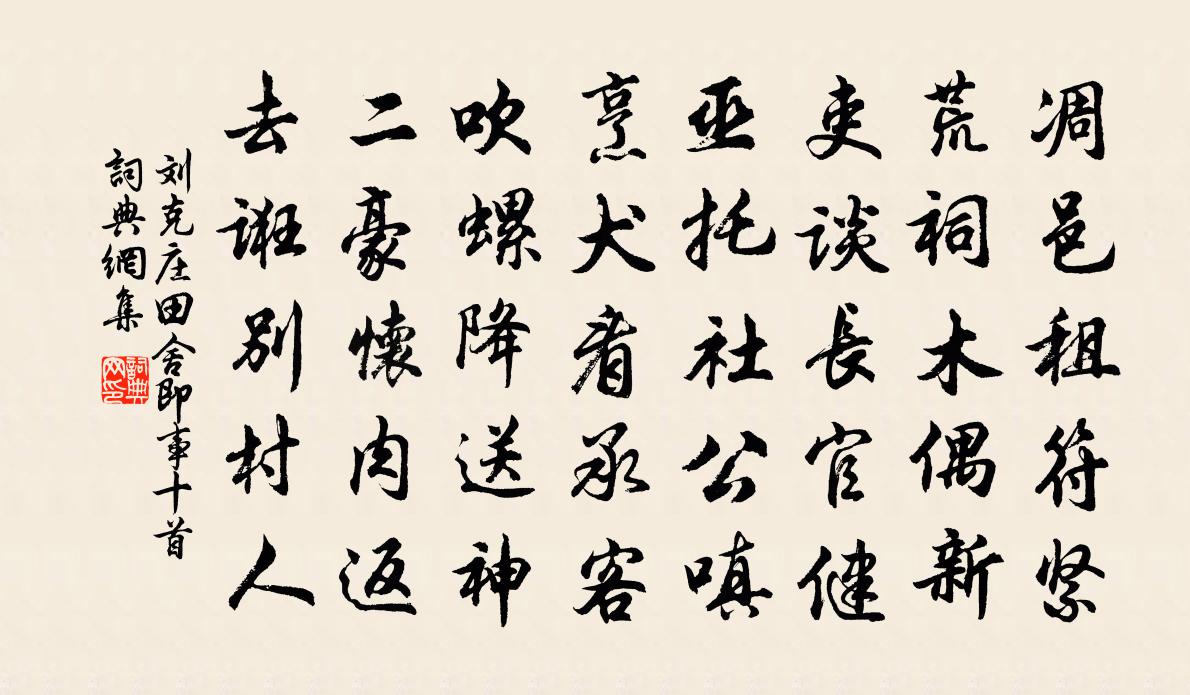 凋邑租符紧
荒祠木偶新
吏谈長官健
巫托社公嗔
烹犬肴承客
吹螺降送神
二豪懷肉返
去诳别村人
刘克庄田舍即事十首
詞典網集
詞典网印